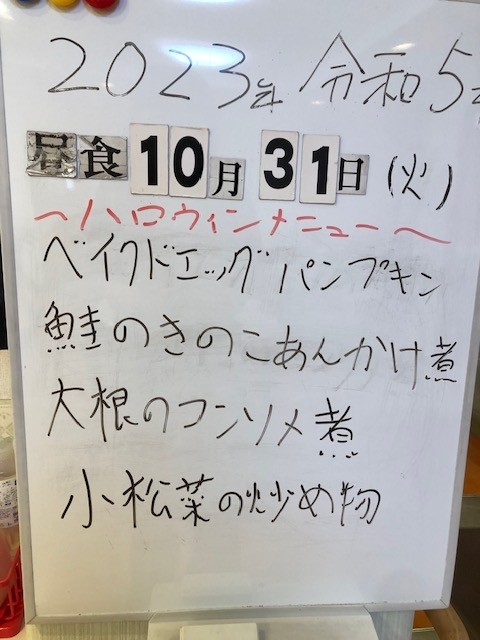 2023年 令和5年
昼食 10月 31日 (火)
~ハロウィンメニュー~
ベイクドエッグパンプキン
鮭のきのこあんかけ煮
大根のコンソメ煮
小松菜の炒め物